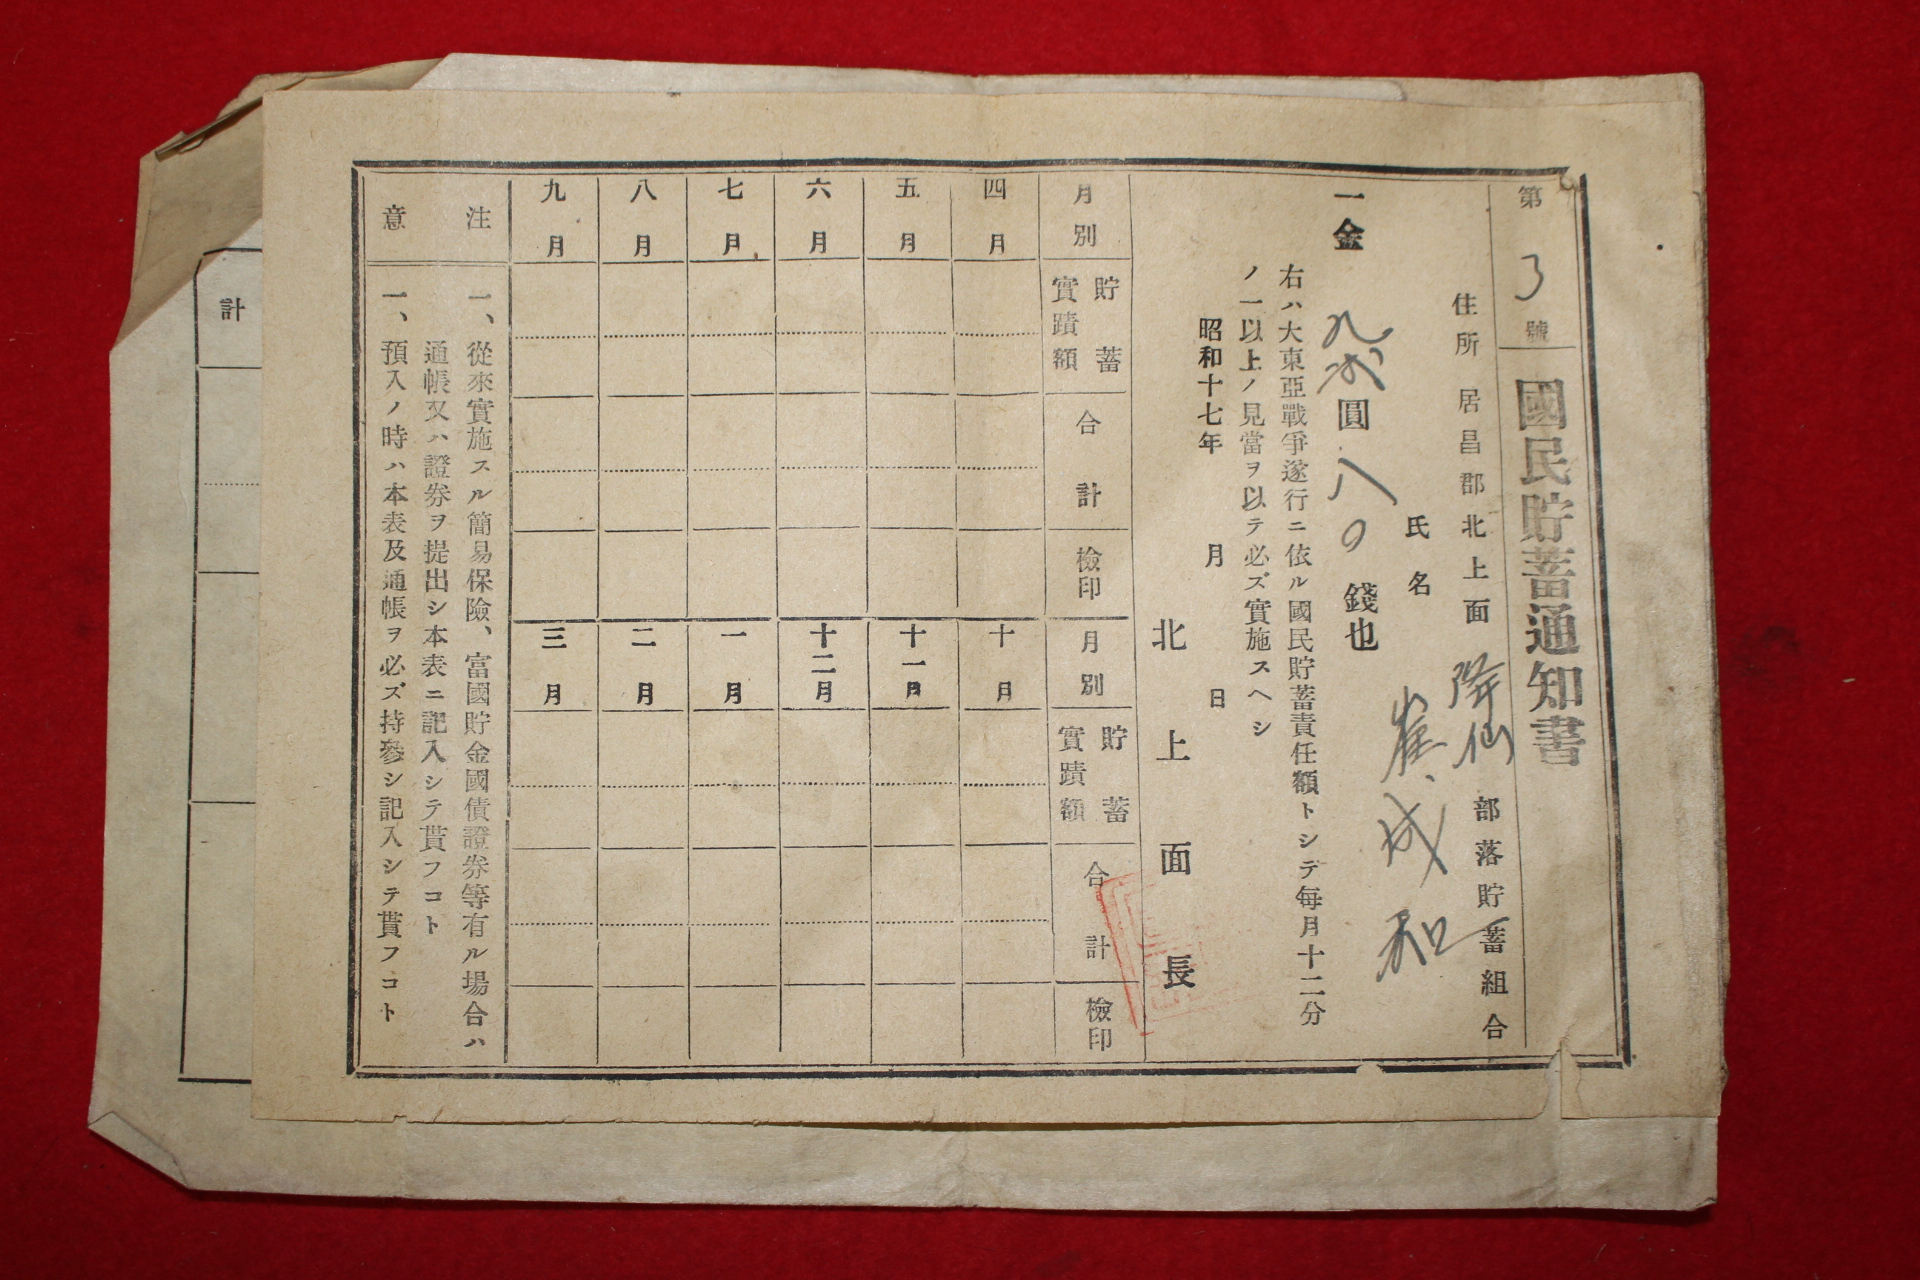 第 3 號
國民貯蓄通知書
住所 居昌郡北上面 降仙 部落貯蓄組合
氏名 崔成和
一金 九 圓 八〇 錢也
右ハ大東亞戰爭遂行ニ依ル國民貯蓄責任額トシテ每月十二分
ノ一以上ノ見當ヲ以テ必ズ實施スヘシ
昭和十七年 月 日
北上面長
月別 貯蓄實蹟額 合計 檢印 月別 貯蓄實蹟額 合計 檢印
四月 十月
五月 十一月
六月 十二月
七月 一月
八月 二月
九月 三月
注意
一、從來實施スル簡易保險、富國貯金國債證券等有ル場合ハ
通帳又ハ證券ヲ提出シ本表ニ記入シテ貰フコト
一、預入ノ時ハ本表及通帳ヲ必ズ持參シ記入シテ貰フコト
計